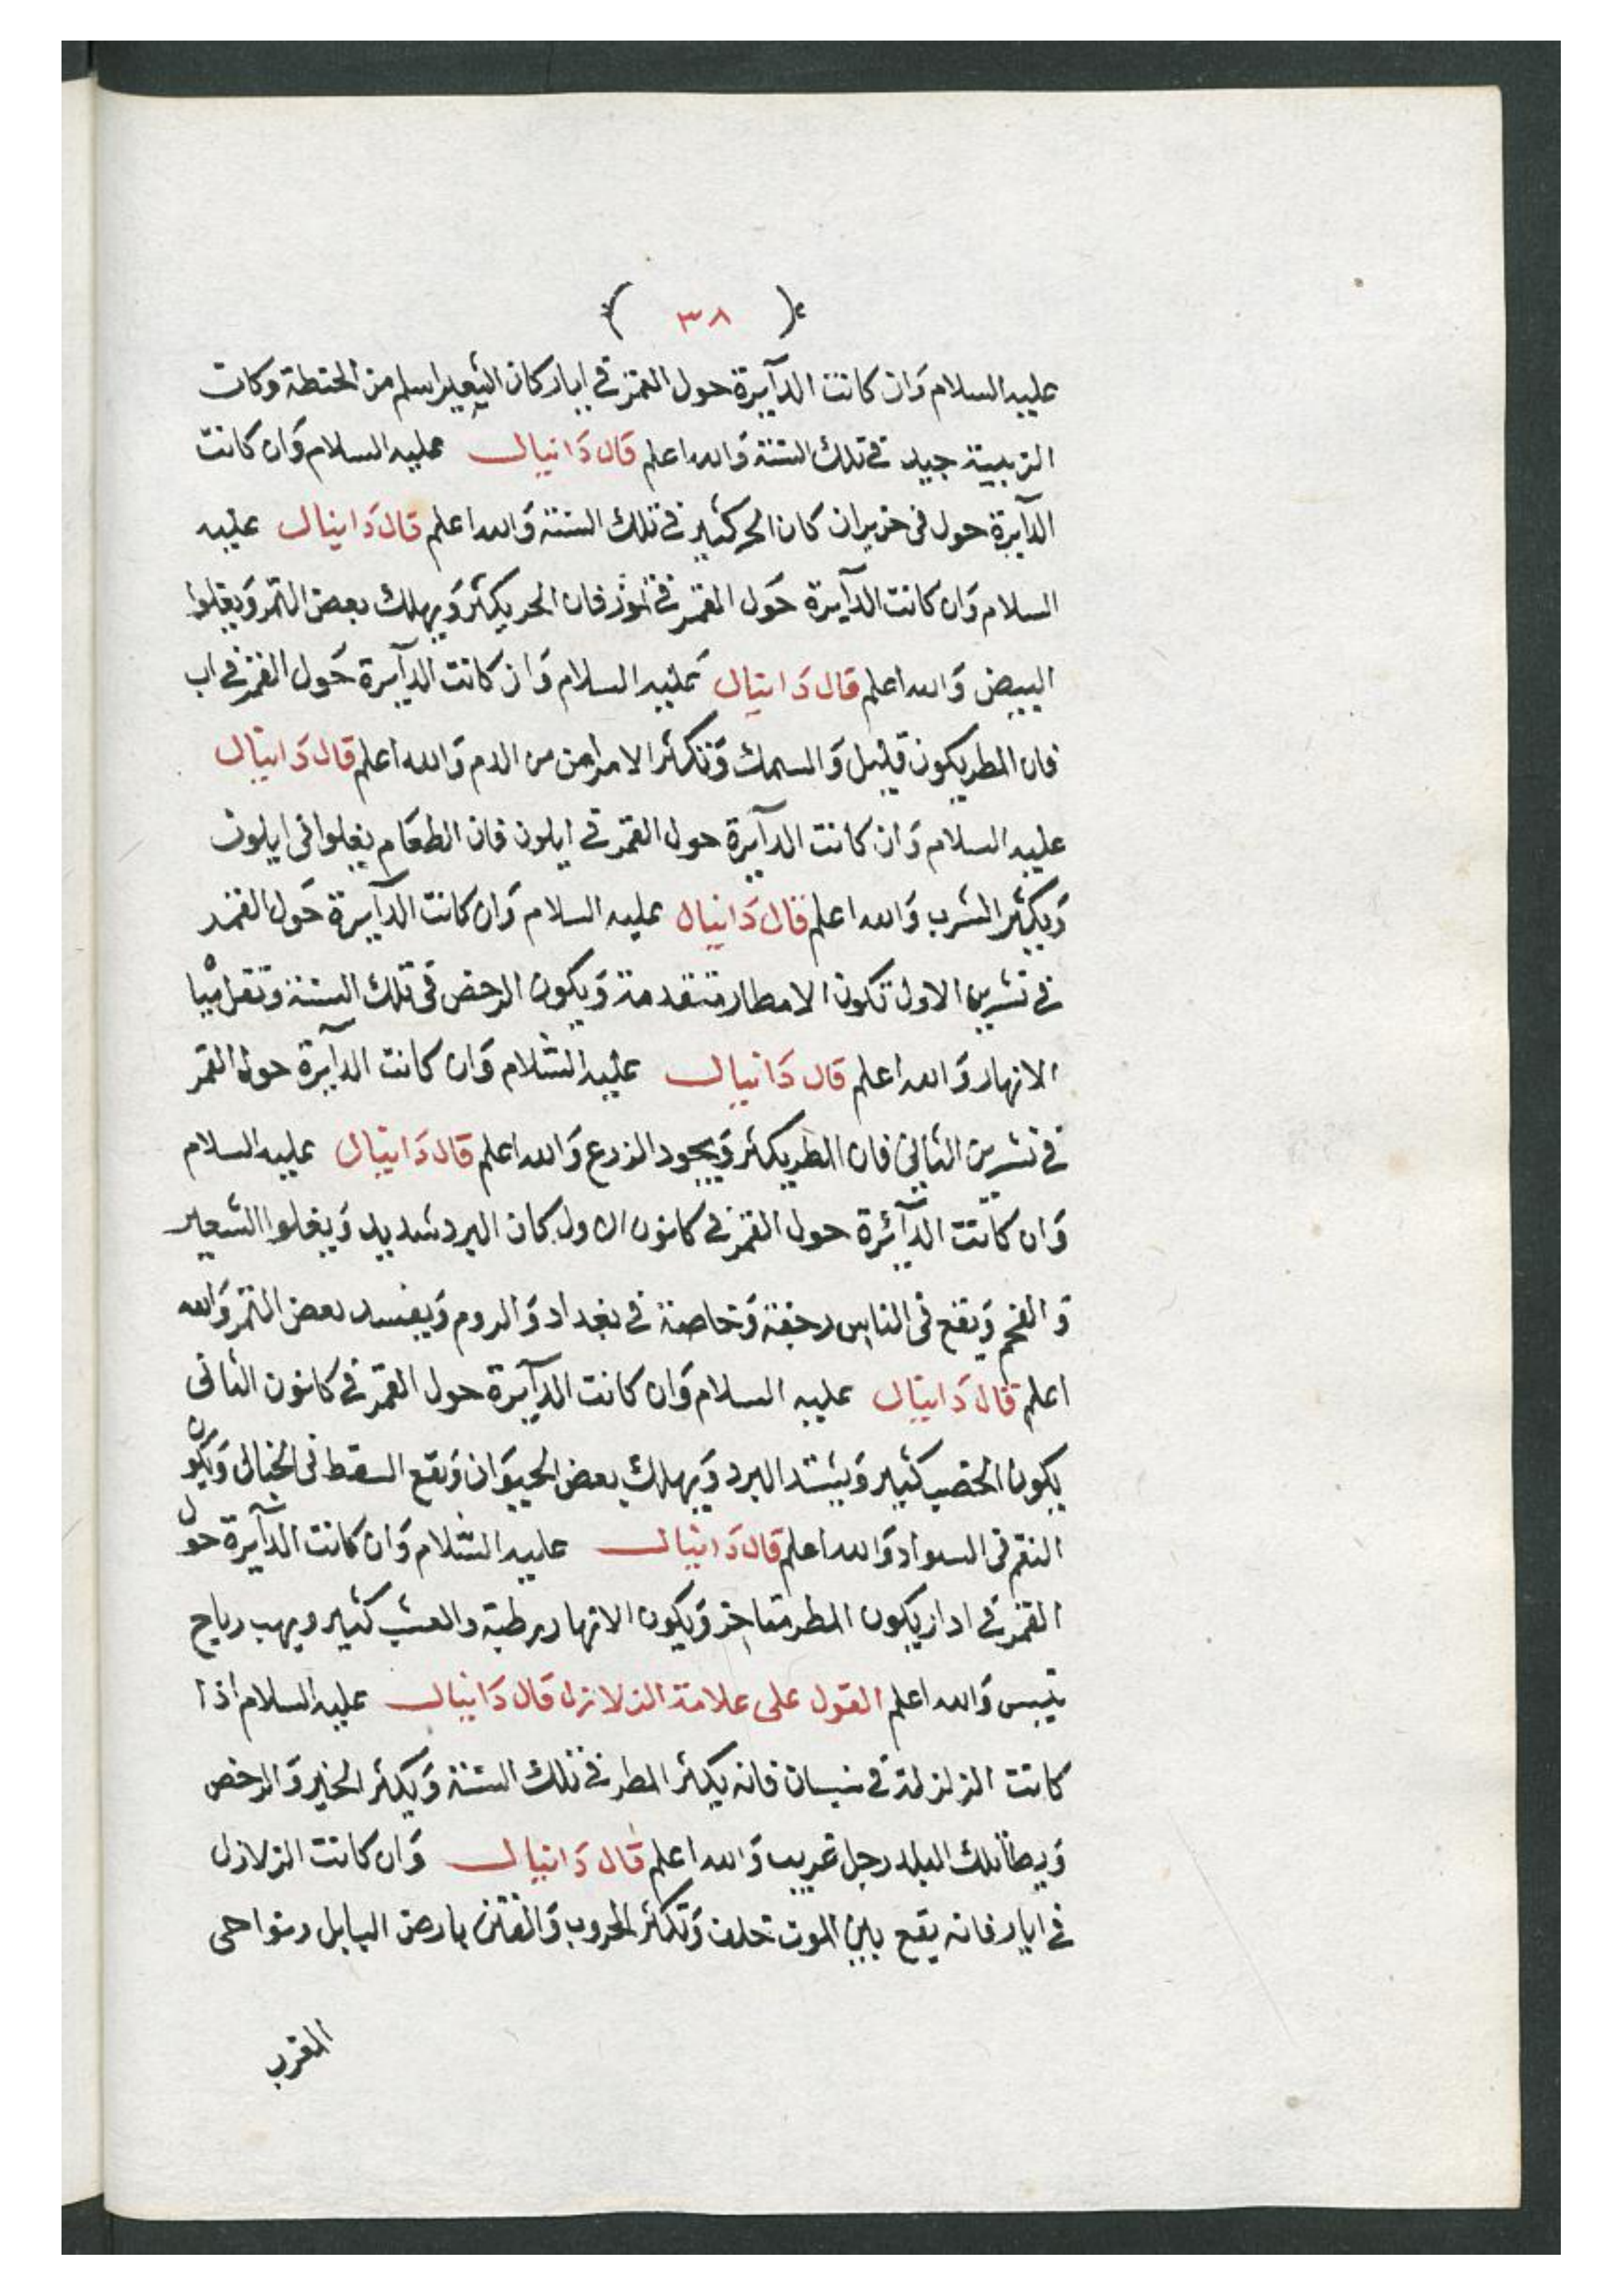 ( ٣٨ )
عليه السلام وَان كانت الدآيرة حول القمر في ايار كان الشعير اسلم من الحنطة وكات
التربية جيد في تلك السنة وَالله اعلم قال دَانيال عليه السلام وَان كانت
الدآيرة حول فى حزيران كان الحر كثير في تلك السنة وَالله اعلم قال دَانيال عليه
السلام وَان كانت الدآيرة حَول القمر في تموز فان الحر يكثر وَيهلك بعض الثمر وَيغلوا
البيض وَالله اعلم قال دَانيال عَليه السلام وَان كانت الدآيرة حَول القمر في اب
فان المطر يكون قليل وَالسمك وَتكثر الامراض من الدم وَالله اعلم قال دَانيال
عليه السلام وَان كانت الدآيرة حول القمر في ايلون فان الطعَام يغلوا فى ايلون
وَيكثر الشرب وَالله اعلم قال دَانيال عليه السلام وَان كانت الدآيرة حَول القمر
في تشرين الاول تكون الامطار متقدمة وَيكون الرخص فى تلك السنة وتقل مياه
الانهار وَالله اعلم قال دَانيال عليه السَّلام وَان كانت الدآيرة حول القمر
في تشرين الثاني فان المطر يكثر وَيجود الزرع وَالله اعلم قال دَانيال عليه السلام
وَان كانت الدآئرة حول القمر في كانون الاول كان البرد شديد وَيغلوا الشعير
وَالفحم وَيقع فى الناس رجفة وَخاصة في بغداد وَالروم وَيفسد بعض الثمر وَالله
اعلم قال دَانيال عليه السلام وَان كانت الدآيرة حول القمر في كانون الثانى
يكون الخصب كثير وَيشتد البرد وَيهلك بعض الحيوَان وَيقع السقط فى الجبال وَيكون
النقم فى السواد وَالله اعلم قال دَانيال عليه السَّلام وَان كانت الدآيرة حول
القمر في ادار يكون المطر متاخر وَيكون الانهار رطبة والعشب كثير ويهب رياح
تيبس وَالله اعلم القول على علامة الزلازل قال دَانيال عليه السلام اذا
كانت الزلزلة في نيسان فانه يكثر المطر في تلك السنة وَيكثر الخير وَالرخص
وَيطا تلك البلد رجل غريب وَالله اعلم قال دَانيال وَان كانت الزلازل
في ايار فانه يقع بين الموت خلف وَتكثر الحروب وَالفتن بارض البابل ونواحى
المغرب